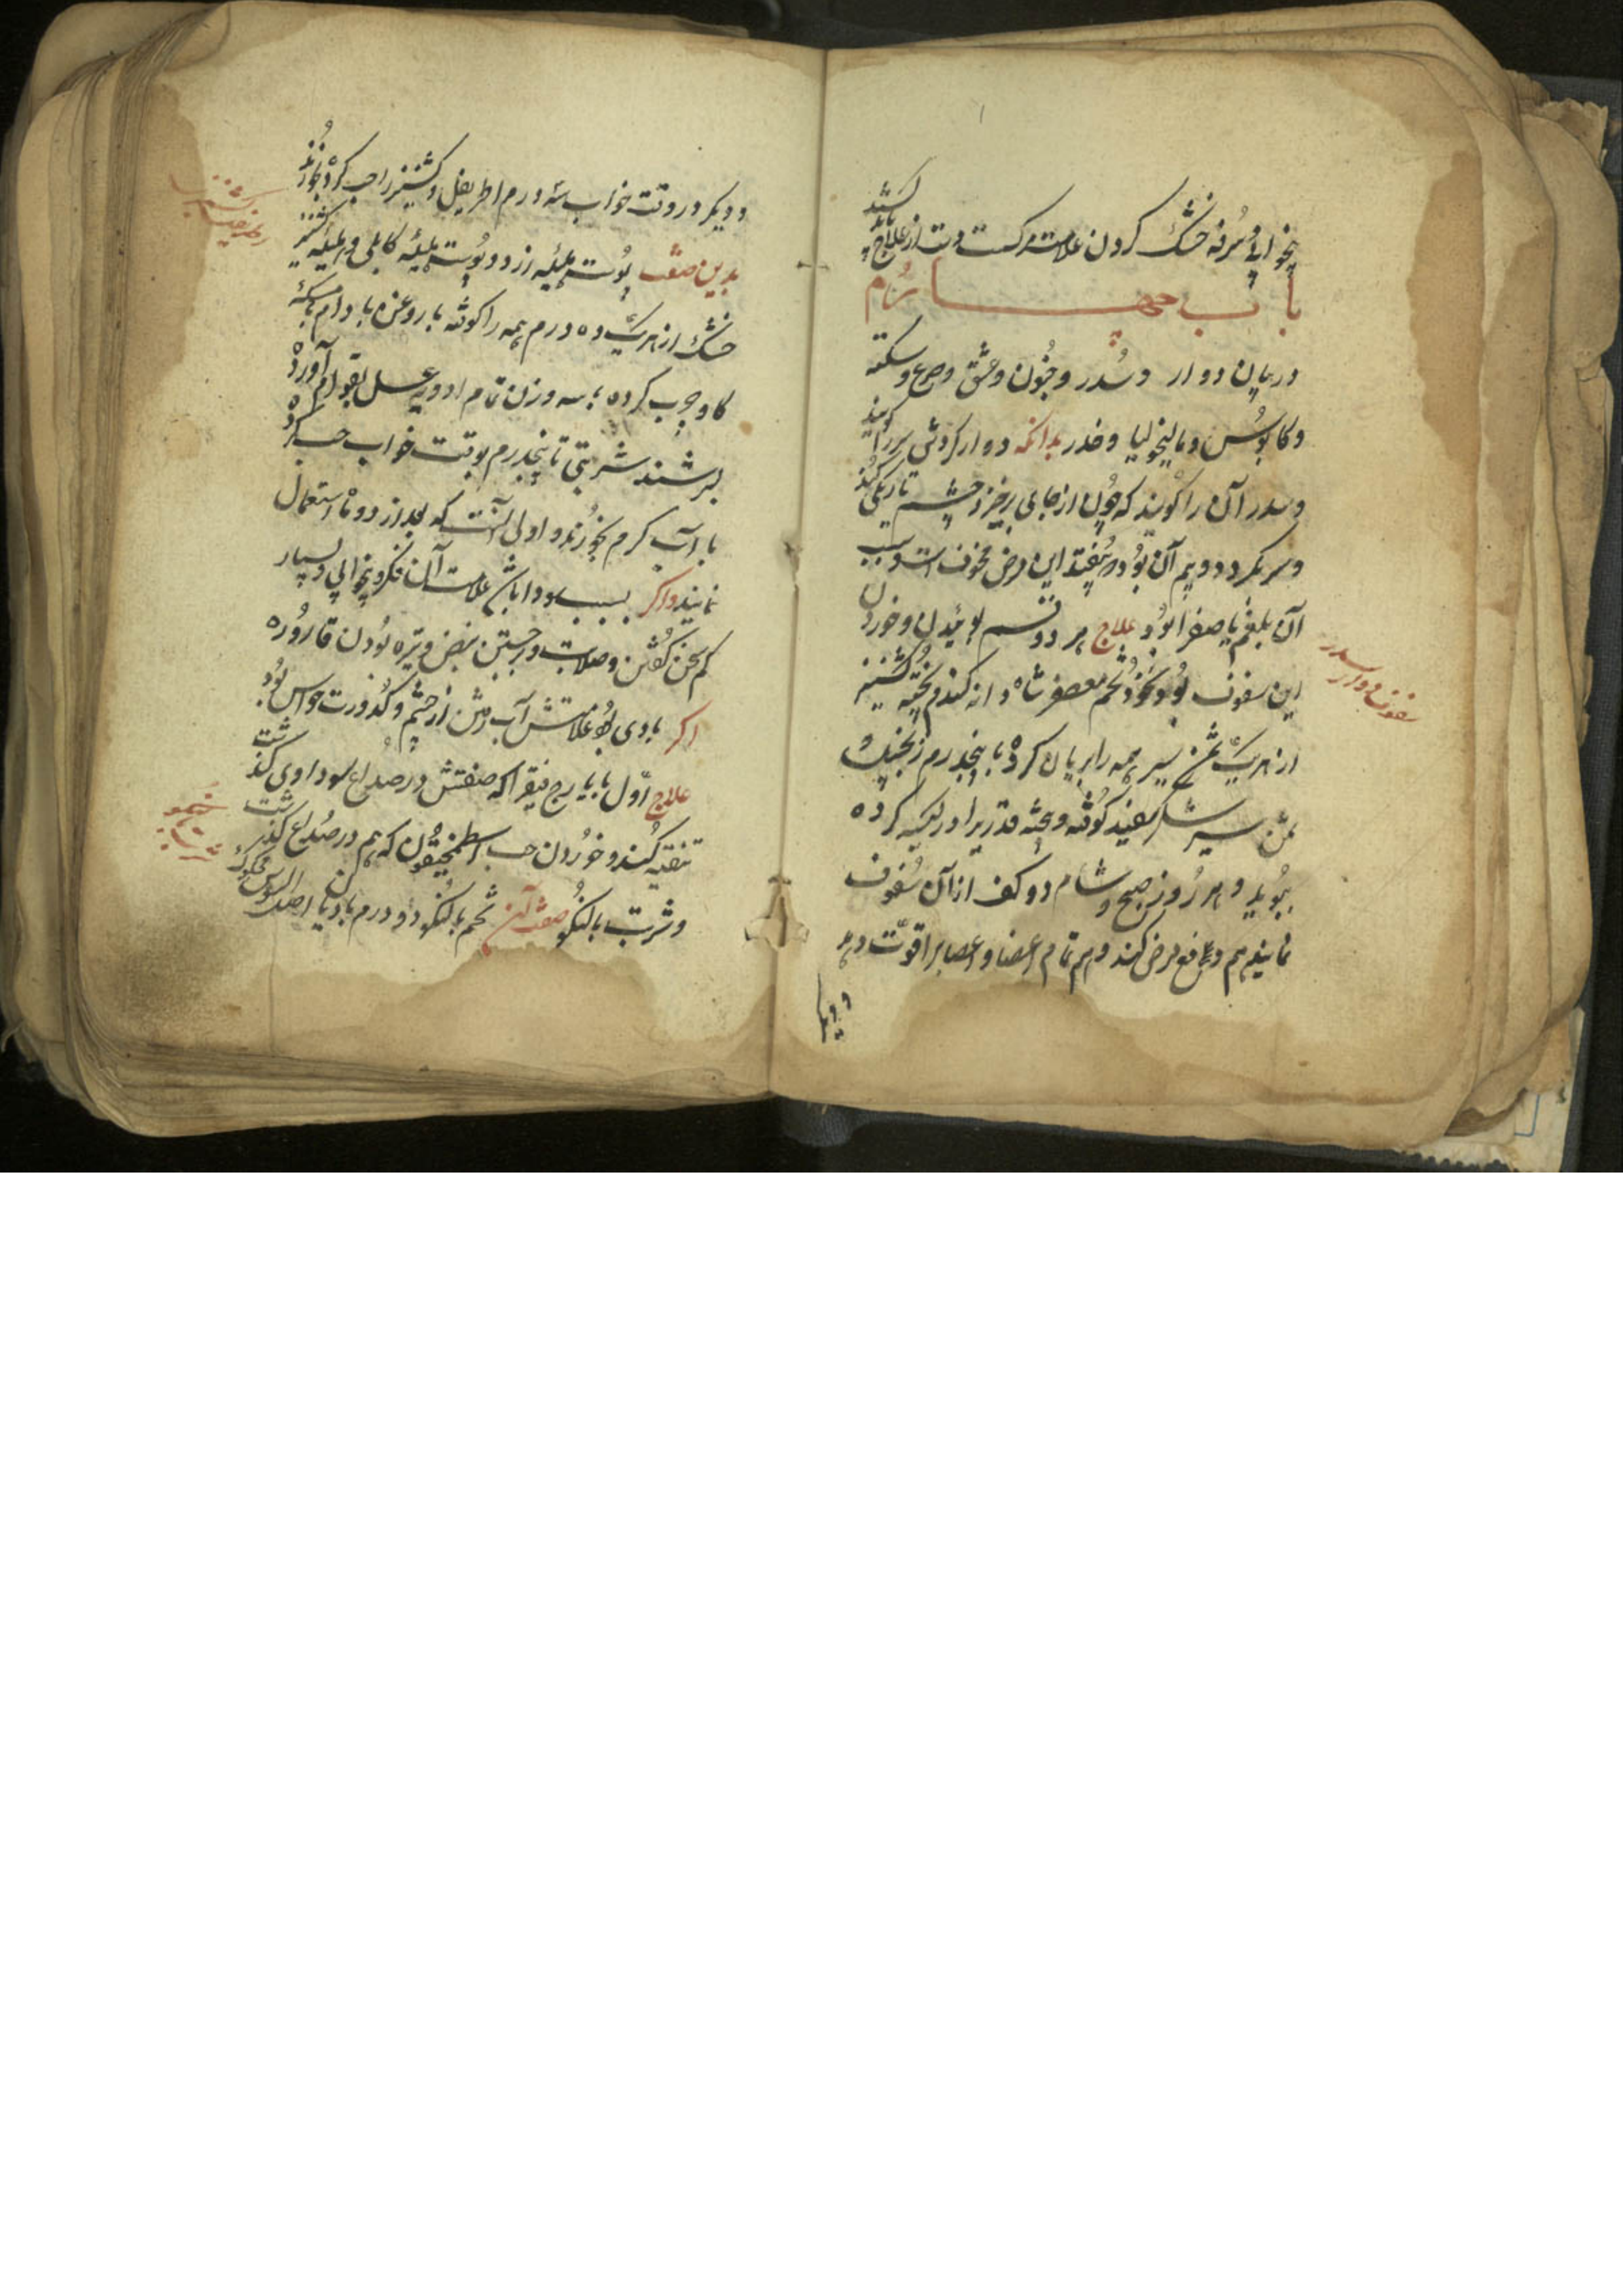 بیخوابی و سرفه خشک کردن علامت مرگست دست از علاج باید کشید
باب چهارم
در بیان دوار و سدر و جنون و عشق و صرع و سکته
و کابوس و مالیخولیا و خدر بدانکه دوار گردش سر را گویند
و سدر آن را گویند که چون از جای برخیزد چشم تاریکی کند
و سر بگردد و بیم آن بود که بیفتد این مرض مخوف است و سبب
آن بلغم یا صفرا بود علاج هر دو قسم بوئیدن و خوردن
این سفوف بود تخم معصفر شاه دانه گندم پخته کشنیز
از هریک ثمن سیر همه را بریان کرده با پنجدرم زنجبیل و
ثمن سیر شکر سفید کوفته و بیخته قدریرا در کیسه کرده
ببوید و هر روز صبح و شام دو کف از آن سفوف
نمایند هم دفع مرض کند و هم تمام اعضا و اعصابرا قوت دهد
و دیگر
سفوف دوار سدر
و دیگر در وقت خواب سه درم اطریفل کشنیز را حب کرده بخورند
بدین صفت پوست هلیله زرد و پوست هلیله کابلی و هلیله کشنیز
خشک از هریک ده درم همه را کوفته با روغن بادام یا مسکه
گاو چرب کرده با سه وزن تمام ادویه عسل بقوام آورده
بسرشند شربتی تا پنجدرم بوقت خواب حب کرده
با آب گرم بخورند و اولی آنست که بعد از دو ماه استعمال
نمایند و اگر بسبب سودا باشد علامت آن فکر و بیخوابی و بسیار
کم سخن گفتن و صلابت و برجستن نبض و تیره بودن قاروره
اگر بادی بود علامتش آب رفتن از چشم و کدورت حواس بود
علاج اول با یارج فیقرا که صفتش در صداع سوداوی گذشت
تنقیه کند و خوردن حب اسطمخیقون که هم در صداع گذشت
و شربت بالنگو صفت آن تخم بالنگو دو درم بادیان اصل السوس محکوک